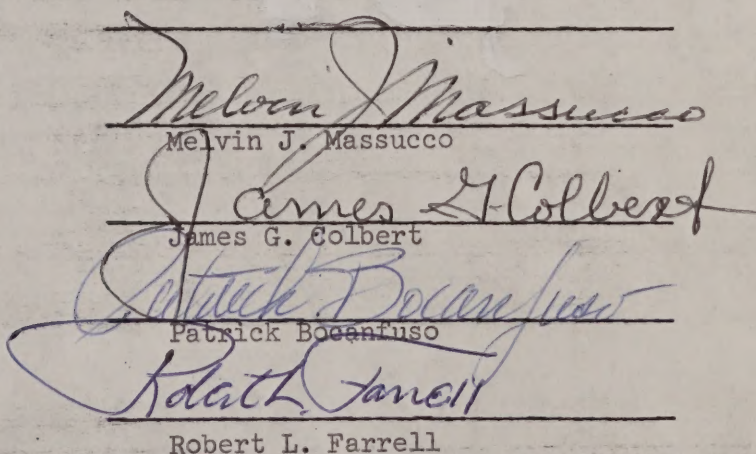 Melvin J Massucco
Melvin J. Massucco
James G. Colbert
James G. Colbert
Patrick Bocanfuso
Patrick Bocanfuso
Robert L. Farrell
Robert L. Farrell